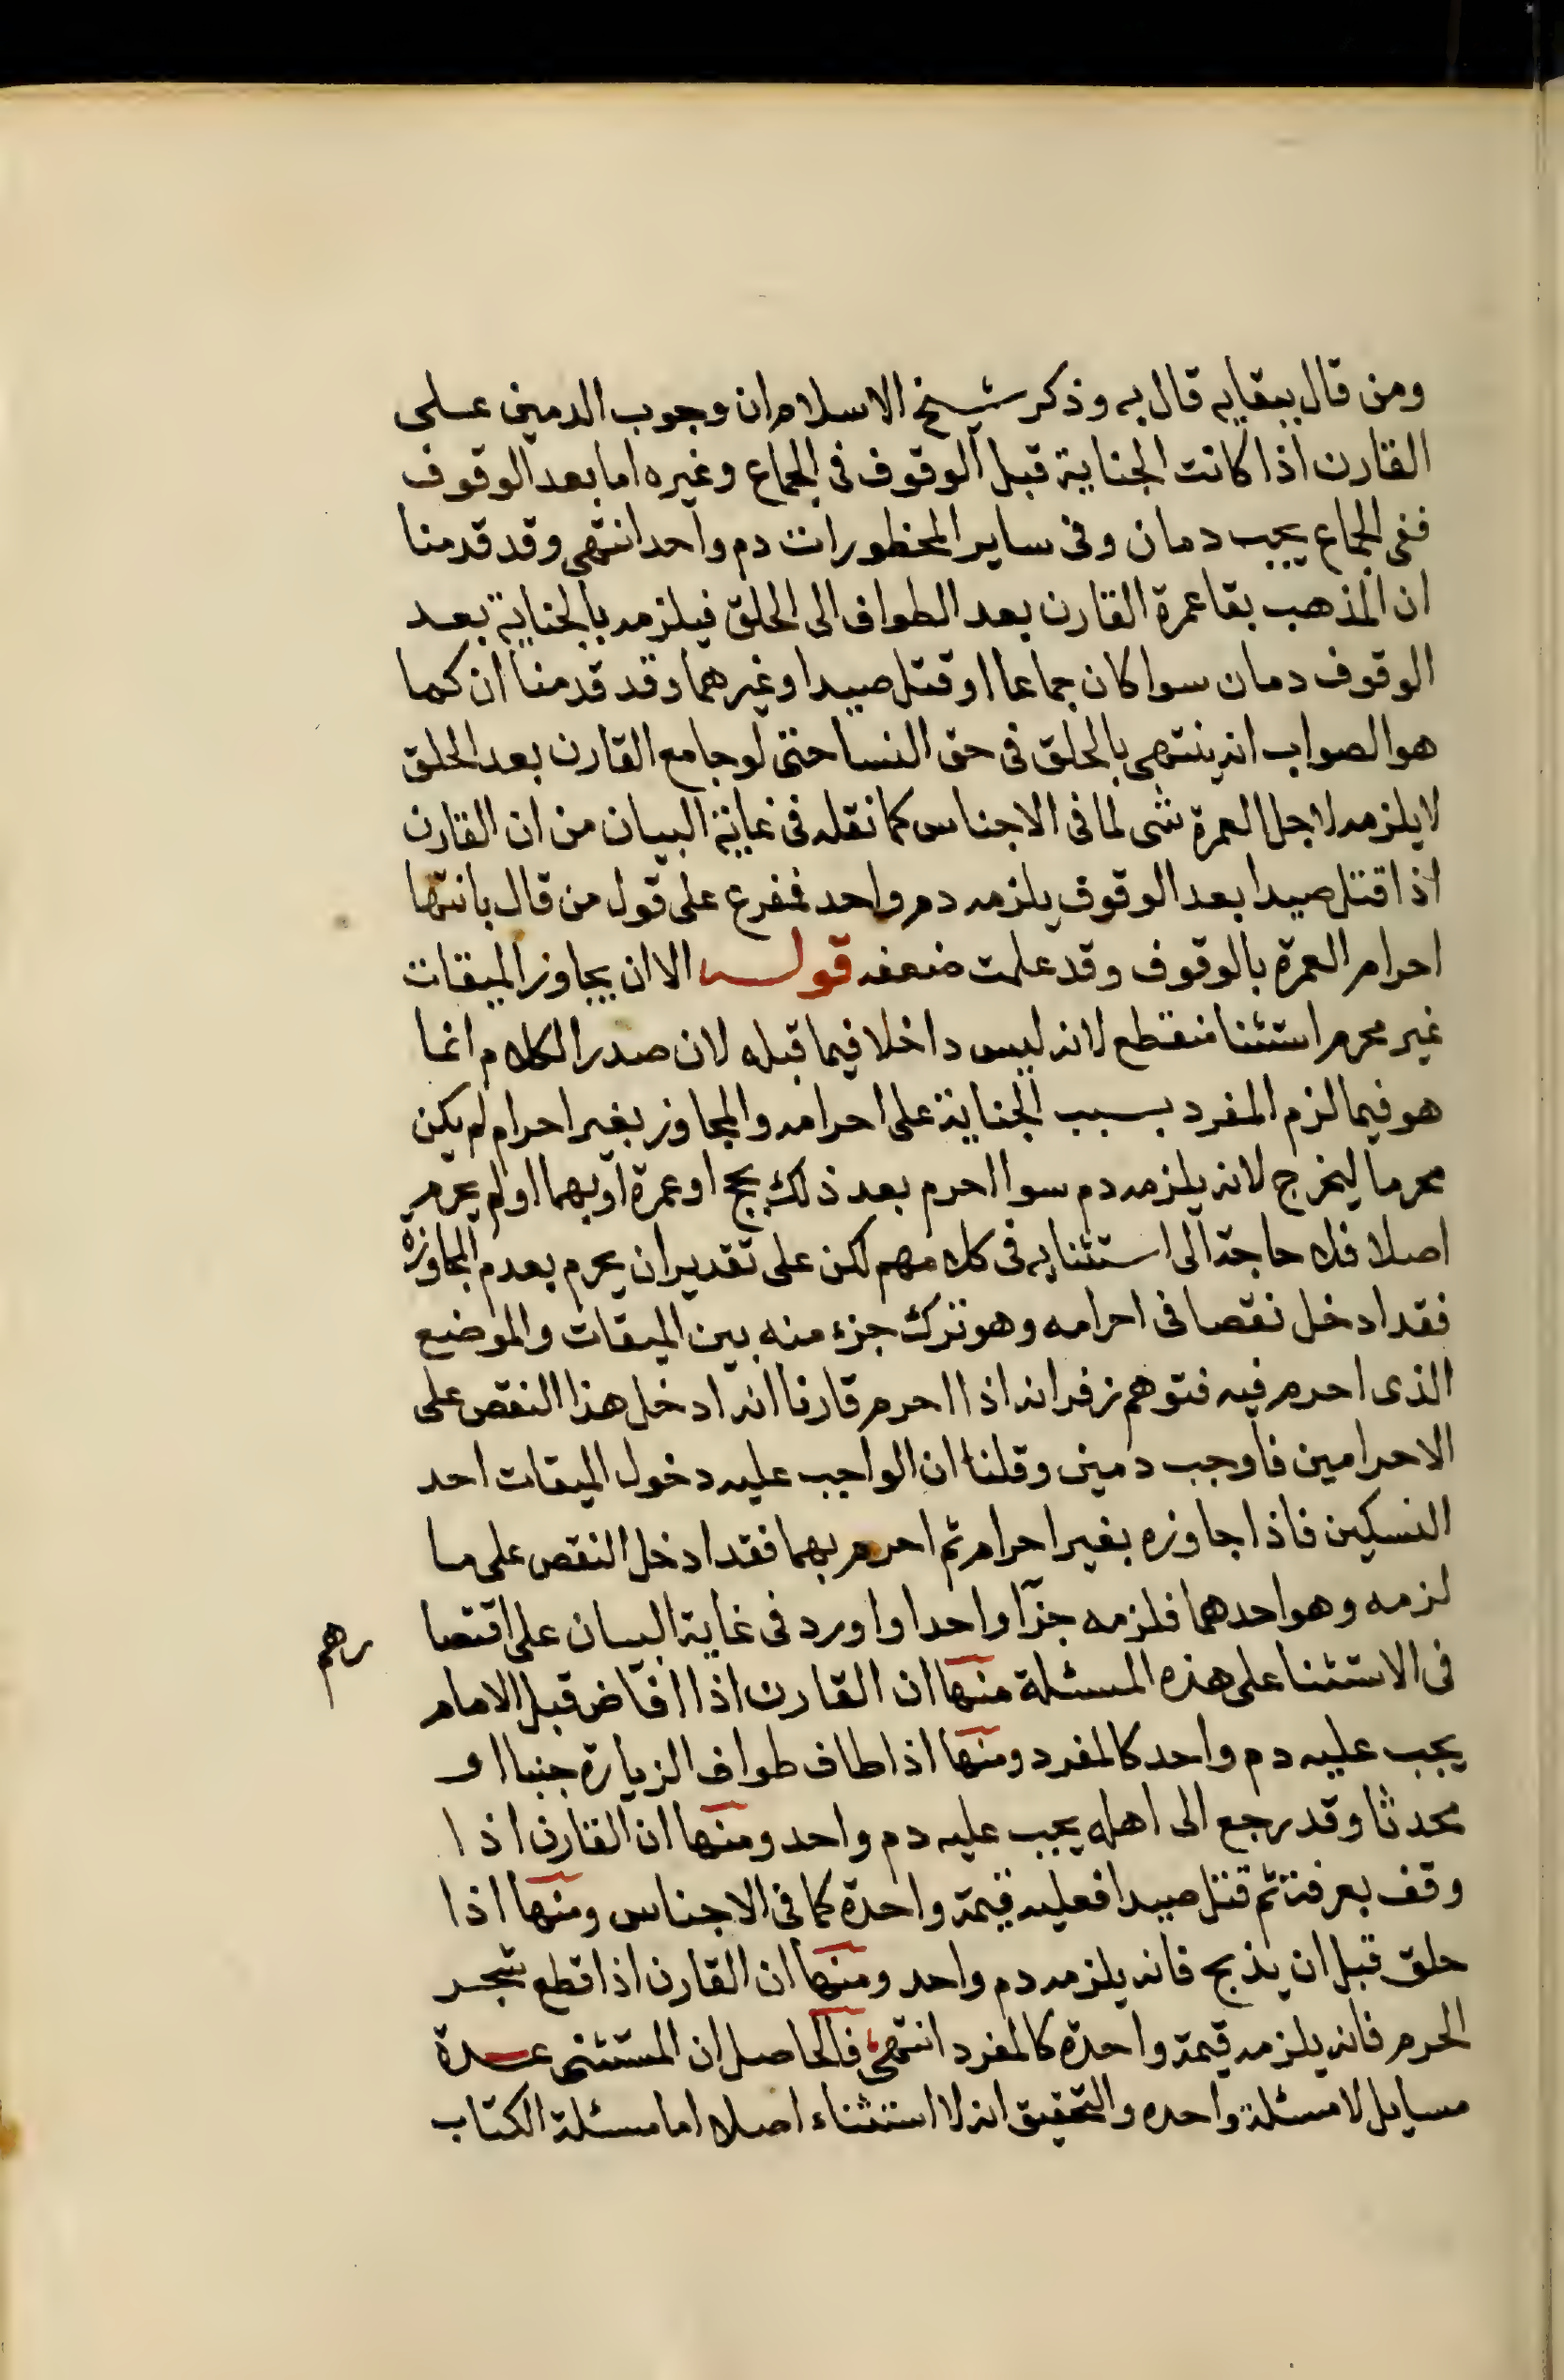 ومن قال ببقايه قال به وذكر شيخ الاسلام ان وجوب الدمين على
القارن اذا كانت الجناية قبل الوقوف فى الجماع وغيره اما بعد الوقوف
ففى الجماع يجب دمان وفى ساير المحظورات دم واحد انتهى وقد قدمنا
ان المذهب بقا عمرة القارن بعد الطواف الى الحلق فيلزمه بالجناية بعد
الوقوف دمان سوا كان جماعا او قتل صيدا وغيرهما وقد قدمنا ان كما
هو الصواب انه ينتهى بالحلق فى حق النسا حتى لو جامع القارن بعد الحلق
لا يلزمه لاجل العمرة شى لما فى الاجناس كما نقله فى غاية البيان من ان القارن
اذا قتل صيدا بعد الوقوف يلزمه دم واحد فمفرع على قول من قال بانتها
احرام العمرة بالوقوف وقد علمت ضعفه قوله الا ان يجاوز الميقات
غير محرم استثنا منقطع لانه ليس داخلا فيما قبله لان صدر الكلام انما
هو فيما لزم المفرد بسبب الجناية على احرامه والمجاوز بغير احرام لم يكن
محرما ليخرج لانه يلزمه دم سوا احرم بعد ذلك بحج او عمرة او بهما او لم يحرم
اصلا فلا حاجة الى استثنايه فى كلامهم لكن على تقدير ان يحرم بعدم المجاوزة
فقد ادخل نقصا فى احرامه وهو ترك جزء منه بين الميقات والموضع
الذى احرم فيه فتوهم زفر انه اذا احرم قارنا انه ادخل هذا النقص على
الاحرامين فاوجب دمين وقلنا ان الواجب عليه دخول الميقات احد
النسكين فاذا جاوزه بغير احرام ثم احرم بهما فقد ادخل النقص على ما
لزمه وهو احدهما فلزمه جزآ واحدا واورد فى غاية البيان على اقتصا رهم
فى الاستثنا على هذه المسئلة منها ان القارن اذا افاض قبل الامام
يجب عليه دم واحد كالمفرد ومنها اذا طاف طواف الزيارة جنبا او
محدثا وقد رجع الى اهله يجب عليه دم واحد ومنها ان القارن اذا
وقف بعرفة ثم قتل صيدا فعليه قيمة واحدة كما فى الاجناس ومنها اذا
حلق قبل ان يذبح فانه يلزمه دم واحد ومنها ان القارن اذا قطع شجر
الحرم فانه يلزمه قيمة واحدة كالمفرد انتهى فالحاصل ان المستثنى عدة
مسايل لا مسئلة واحده والتحقيق انه لا استثناء اصلا اما مسئلة الكتاب